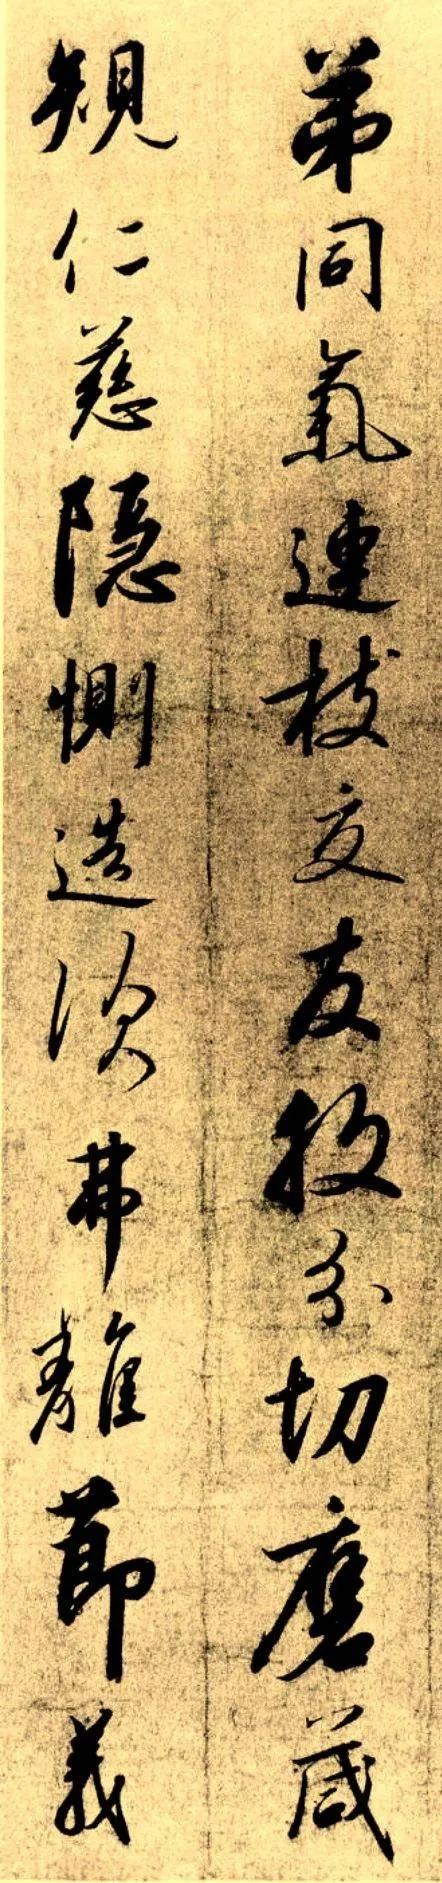 弟同氣連枝交友投分切磨箴
規仁慈隱惻造次弗離節義